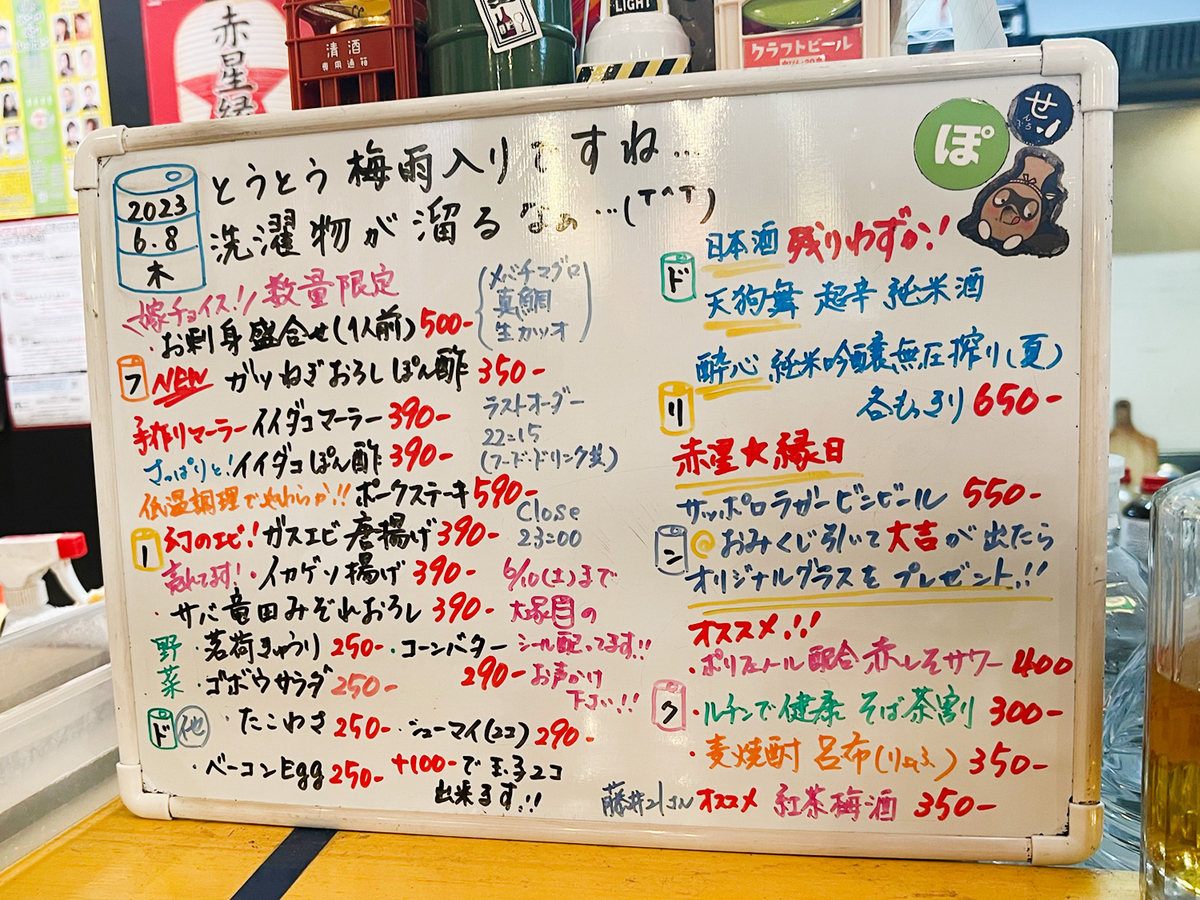 赤星縁
清酒
専用通箱
LIGHT
クラフトビール
ぽ
せ
2023
6.8
木
とうとう梅雨入りですね…
洗濯物が溜るなぁ…(T^T)
嫁チョイス!/数量限定
・お刺身盛合せ(1人前)500-
メバチマグロ
真鯛
生カツオ
フ NEW ガツねぎおろしぽん酢 350-
手作りマーラー イイダコマーラー 390-
さっぱりと! イイダコぽん酢 390-
ラストオーダー
22:15
(フード・ドリンク共)
低温調理でやわらか!! ポークステーキ 590-
Close
23:00
ー 幻のエビ! ガスエビ唐揚げ 390-
売れてます!・イカゲソ揚げ 390-
・サバ竜田みぞれおろし 390-
6/10(土)まで
大塚目の
シール配ってます!!
お声かけ
下さい!!
野菜
・茗荷きゅうり 250-
・コーンバター 290-
・ゴボウサラダ 250-
ド 他
・たこわさ 250-
・シューマイ(2コ) 290-
・ベーコンEgg 250-
+100-で玉子2コ
出来ます!!
ド 日本酒 残りわずか!
天狗舞 超辛 純米酒
酔心 純米吟醸無圧搾り(夏)
リ 各もっきり 650-
赤星★縁日
サッポロラガービンビール 550-
ン おみくじ引いて大吉が出たら
オリジナルグラスをプレゼント!!
オススメ!!
・ポリフェノール配合 赤しそサワー 400
ク ・ルチンで健康 そば茶割 300-
・麦焼酎 呂布(りょふ) 350-
オススメ 紅茶梅酒 350-